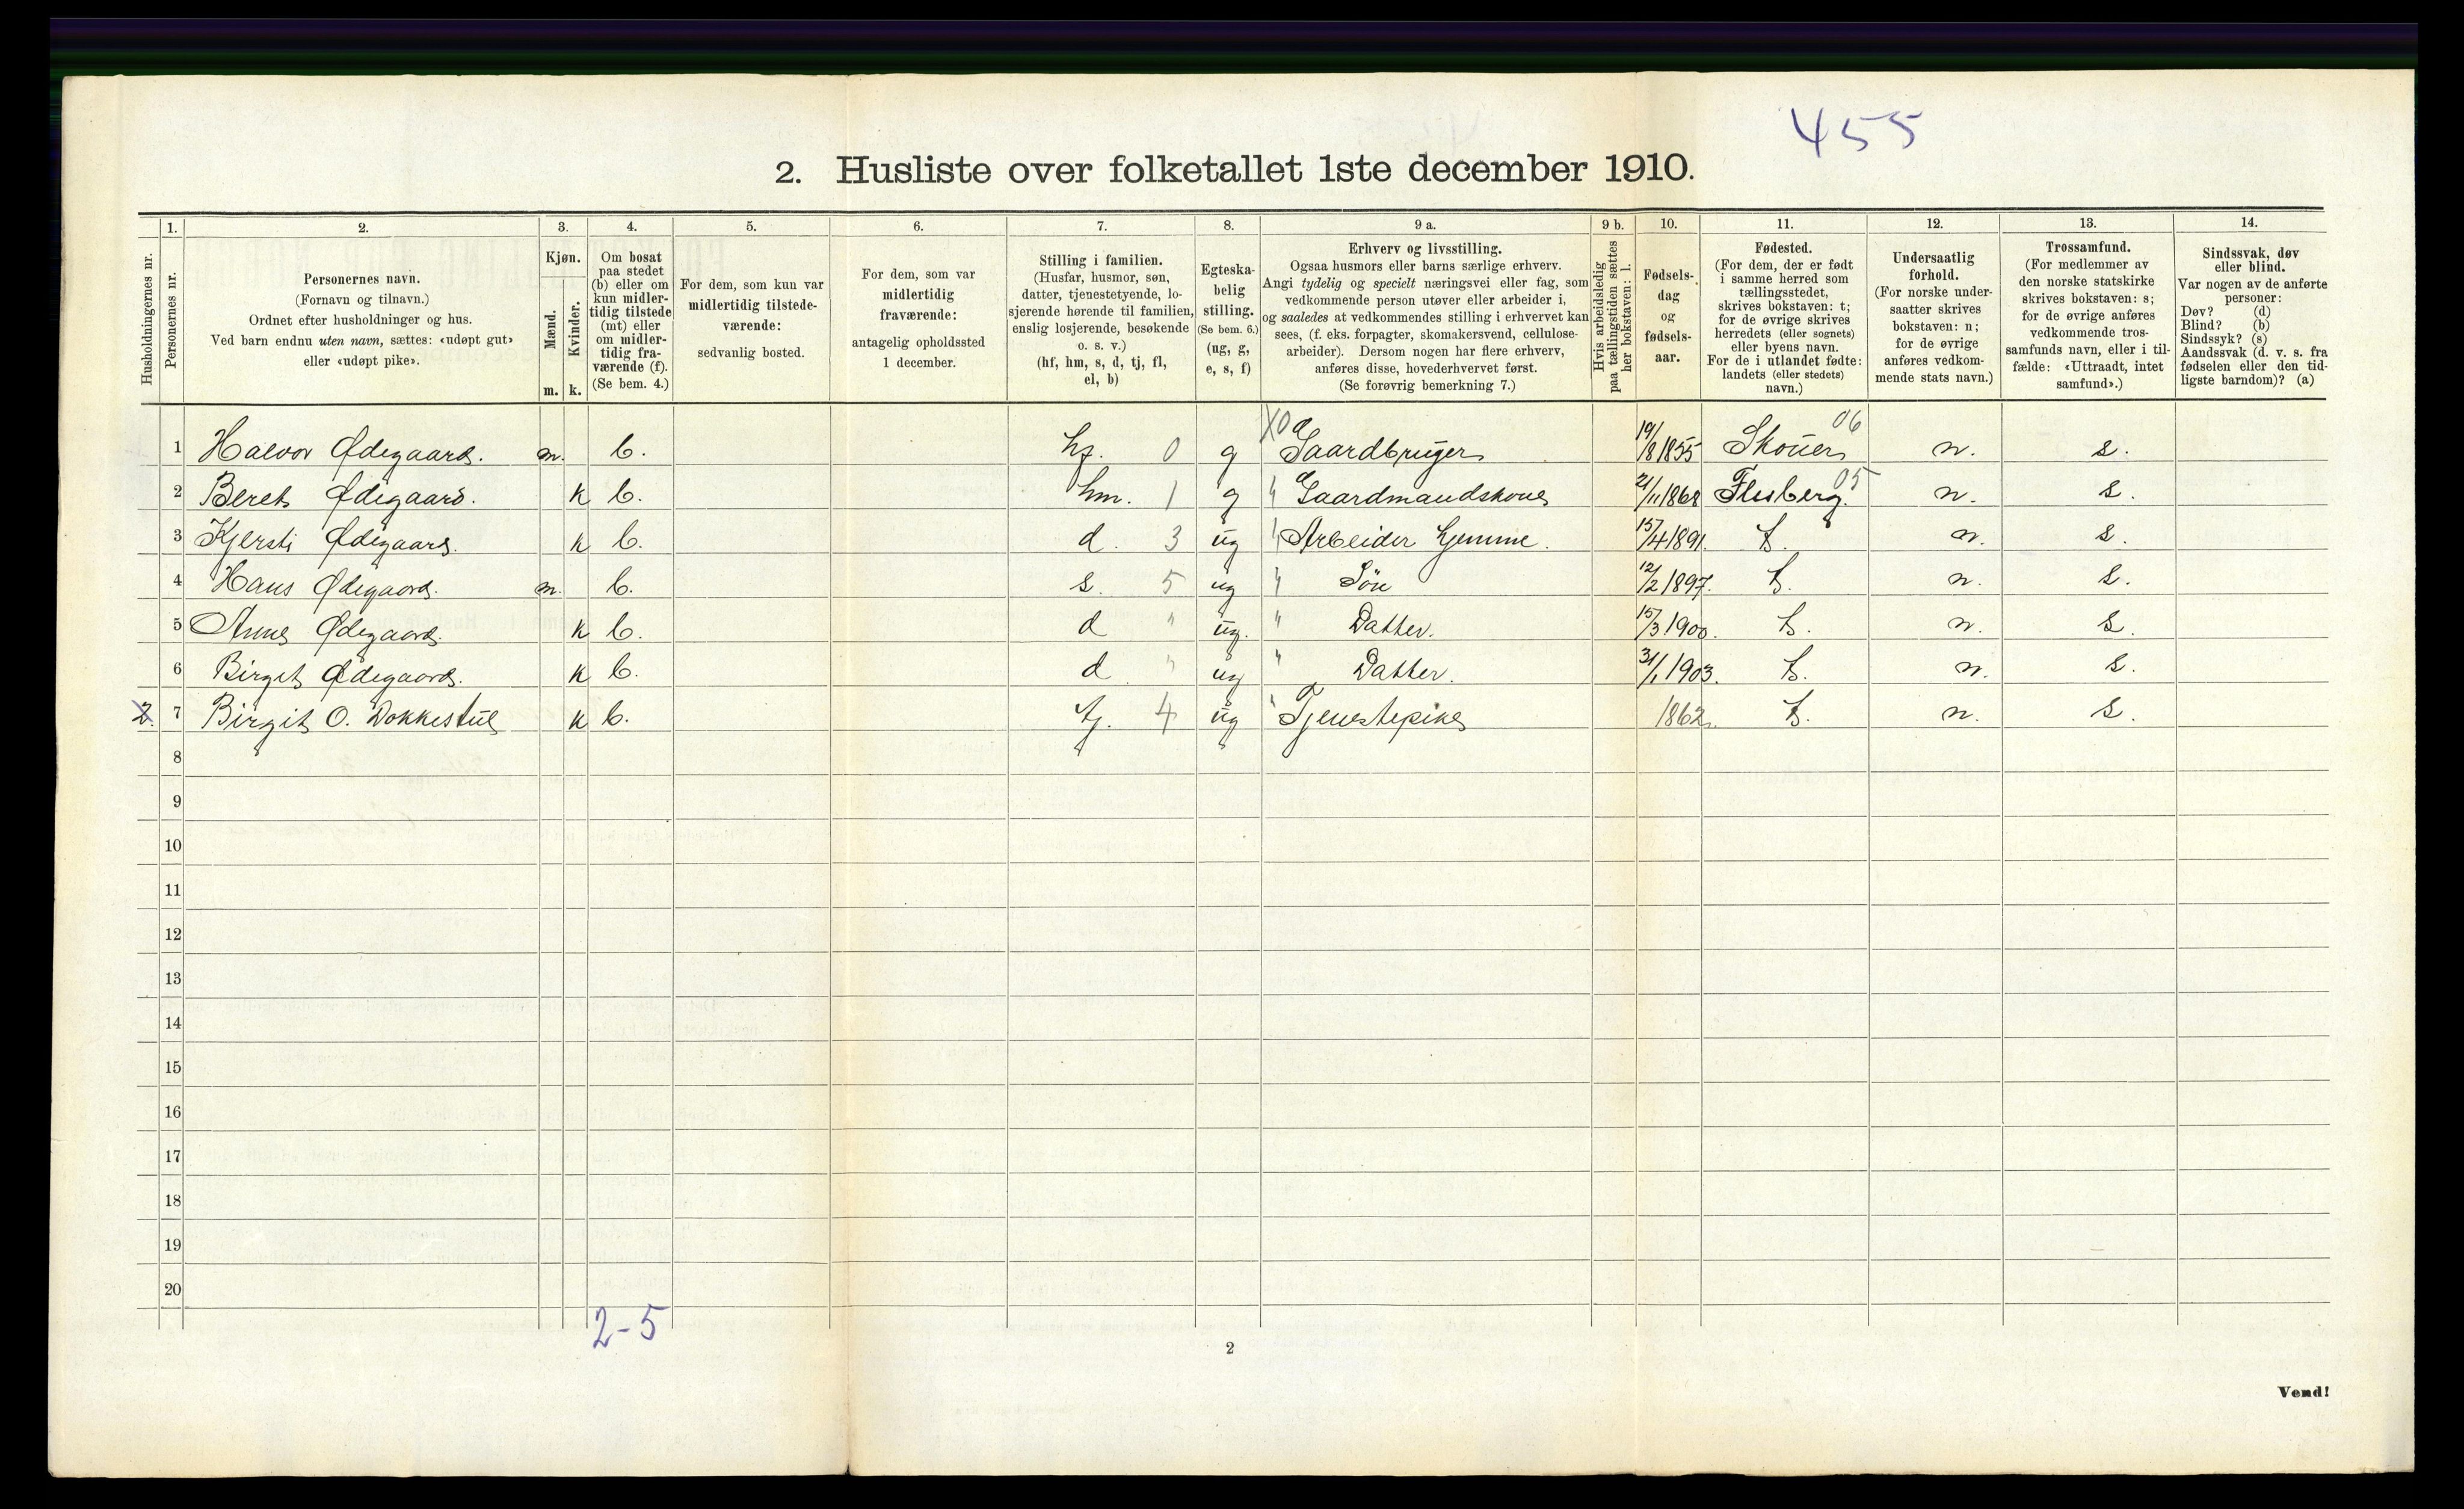 455
2. Husliste over folketallet 1ste december 1910.
Husholdningernes nr.
1. Personernes nr.
2. Personernes navn.
(Fornavn og tilnavn.)
Ordnet efter husholdninger og hus.
Ved barn endnu uten navn, sættes: «udøpt gut»
eller «udøpt pike».
3. Kjøn.
Mænd. m.
Kvinder. k.
4. Om bosat
paa stedet
(b) eller om
kun midler-
tidig tilstede
(mt) eller
om midler-
tidig fra-
værende (f).
(Se bem. 4.)
5. For dem, som kun var
midlertidig tilstede-
værende:
sedvanlig bosted.
6. For dem, som var
midlertidig
fraværende:
antagelig opholdssted
1 december.
7. Stilling i familien.
(Husfar, husmor, søn,
datter, tjenestetyende, lo-
sjerende hørende til familien,
enslig losjerende, besøkende
o. s. v.)
(hf, hm, s, d, tj, fl,
el, b)
8. Egteska-
belig
stilling.
(Se bem. 6.)
(ug, g,
e, s, f)
9 a. Erhverv og livsstilling.
Ogsaa husmors eller barns særlige erhverv.
Angi tydelig og specielt næringsvei eller fag, som
vedkommende person utøver eller arbeider i,
og saaledes at vedkommendes stilling i erhvervet kan
sees, (f. eks. forpagter, skomakersvend, cellulose-
arbeider). Dersom nogen har flere erhverv,
anføres disse, hovederhvervet først.
(Se forøvrig bemerkning 7.)
9 b. Hvis arbeidsledig
paa tællingstiden sættes
her bokstaven: l.
10. Fødsels-
dag
og
fødsels-
aar.
11. Fødested.
(For dem, der er født
i samme herred som
tællingsstedet,
skrives bokstaven: t;
for de øvrige skrives
herredets (eller sognets)
eller byens navn.
For de i utlandet fødte:
landets (eller stedets)
navn.)
12. Undersaatlig
forhold.
(For norske under-
saatter skrives
bokstaven: n;
for de øvrige
anføres vedkom-
mende stats navn.)
13. Trossamfund.
(For medlemmer av
den norske statskirke
skrives bokstaven: s;
for de øvrige anføres
vedkommende tros-
samfunds navn, eller i til-
fælde: «Uttraadt, intet
samfund».)
14. Sindssvak, døv
eller blind.
Var nogen av de anførte
personer:
Døv? (d)
Blind? (b)
Sindssyk? (s)
Aandssvak (d. v. s. fra
fødselen eller den tid-
ligste barndom)? (a)
1 Halvor Ødegaard. m. b. hf. 0 g Gaardbruger 19/8 1855 06 n. s.
2 Beret Ødegaard. k b. hm. 1 g " Gaardmandskone 21/11 1868 Flesberg. 05 n. s.
3 Kjersti Ødegaard. k b. d. 3 ug " Arbeider hjemme. 15/4 1891. t. n. s.
4 Hans Ødegaard. m. b. s. 5 ug " Søn 12/2 1897. t. n. s.
5 Anne Ødegaard. k b. d " ug. " Datter. 15/3 1900. t. n. s.
6 Birgit Ødegaard. k b. d " ug " Datter. 31/1 1903. t. n. s.
2. 7 Birgit O. Dokkestul k b. tj. 4 ug " Tjenestepike 1862. t. n. s.
8
9
10
11
12
13
14
15
16
17
18
19
20
2-5
2
Vend!